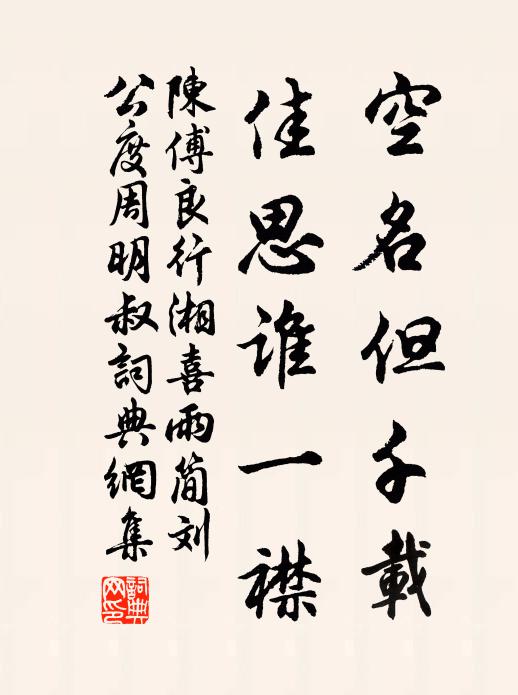 空名但千載
佳思誰一襟
陳傅良行湘喜雨简刘
公度周明叔詞典網集
詞典網印